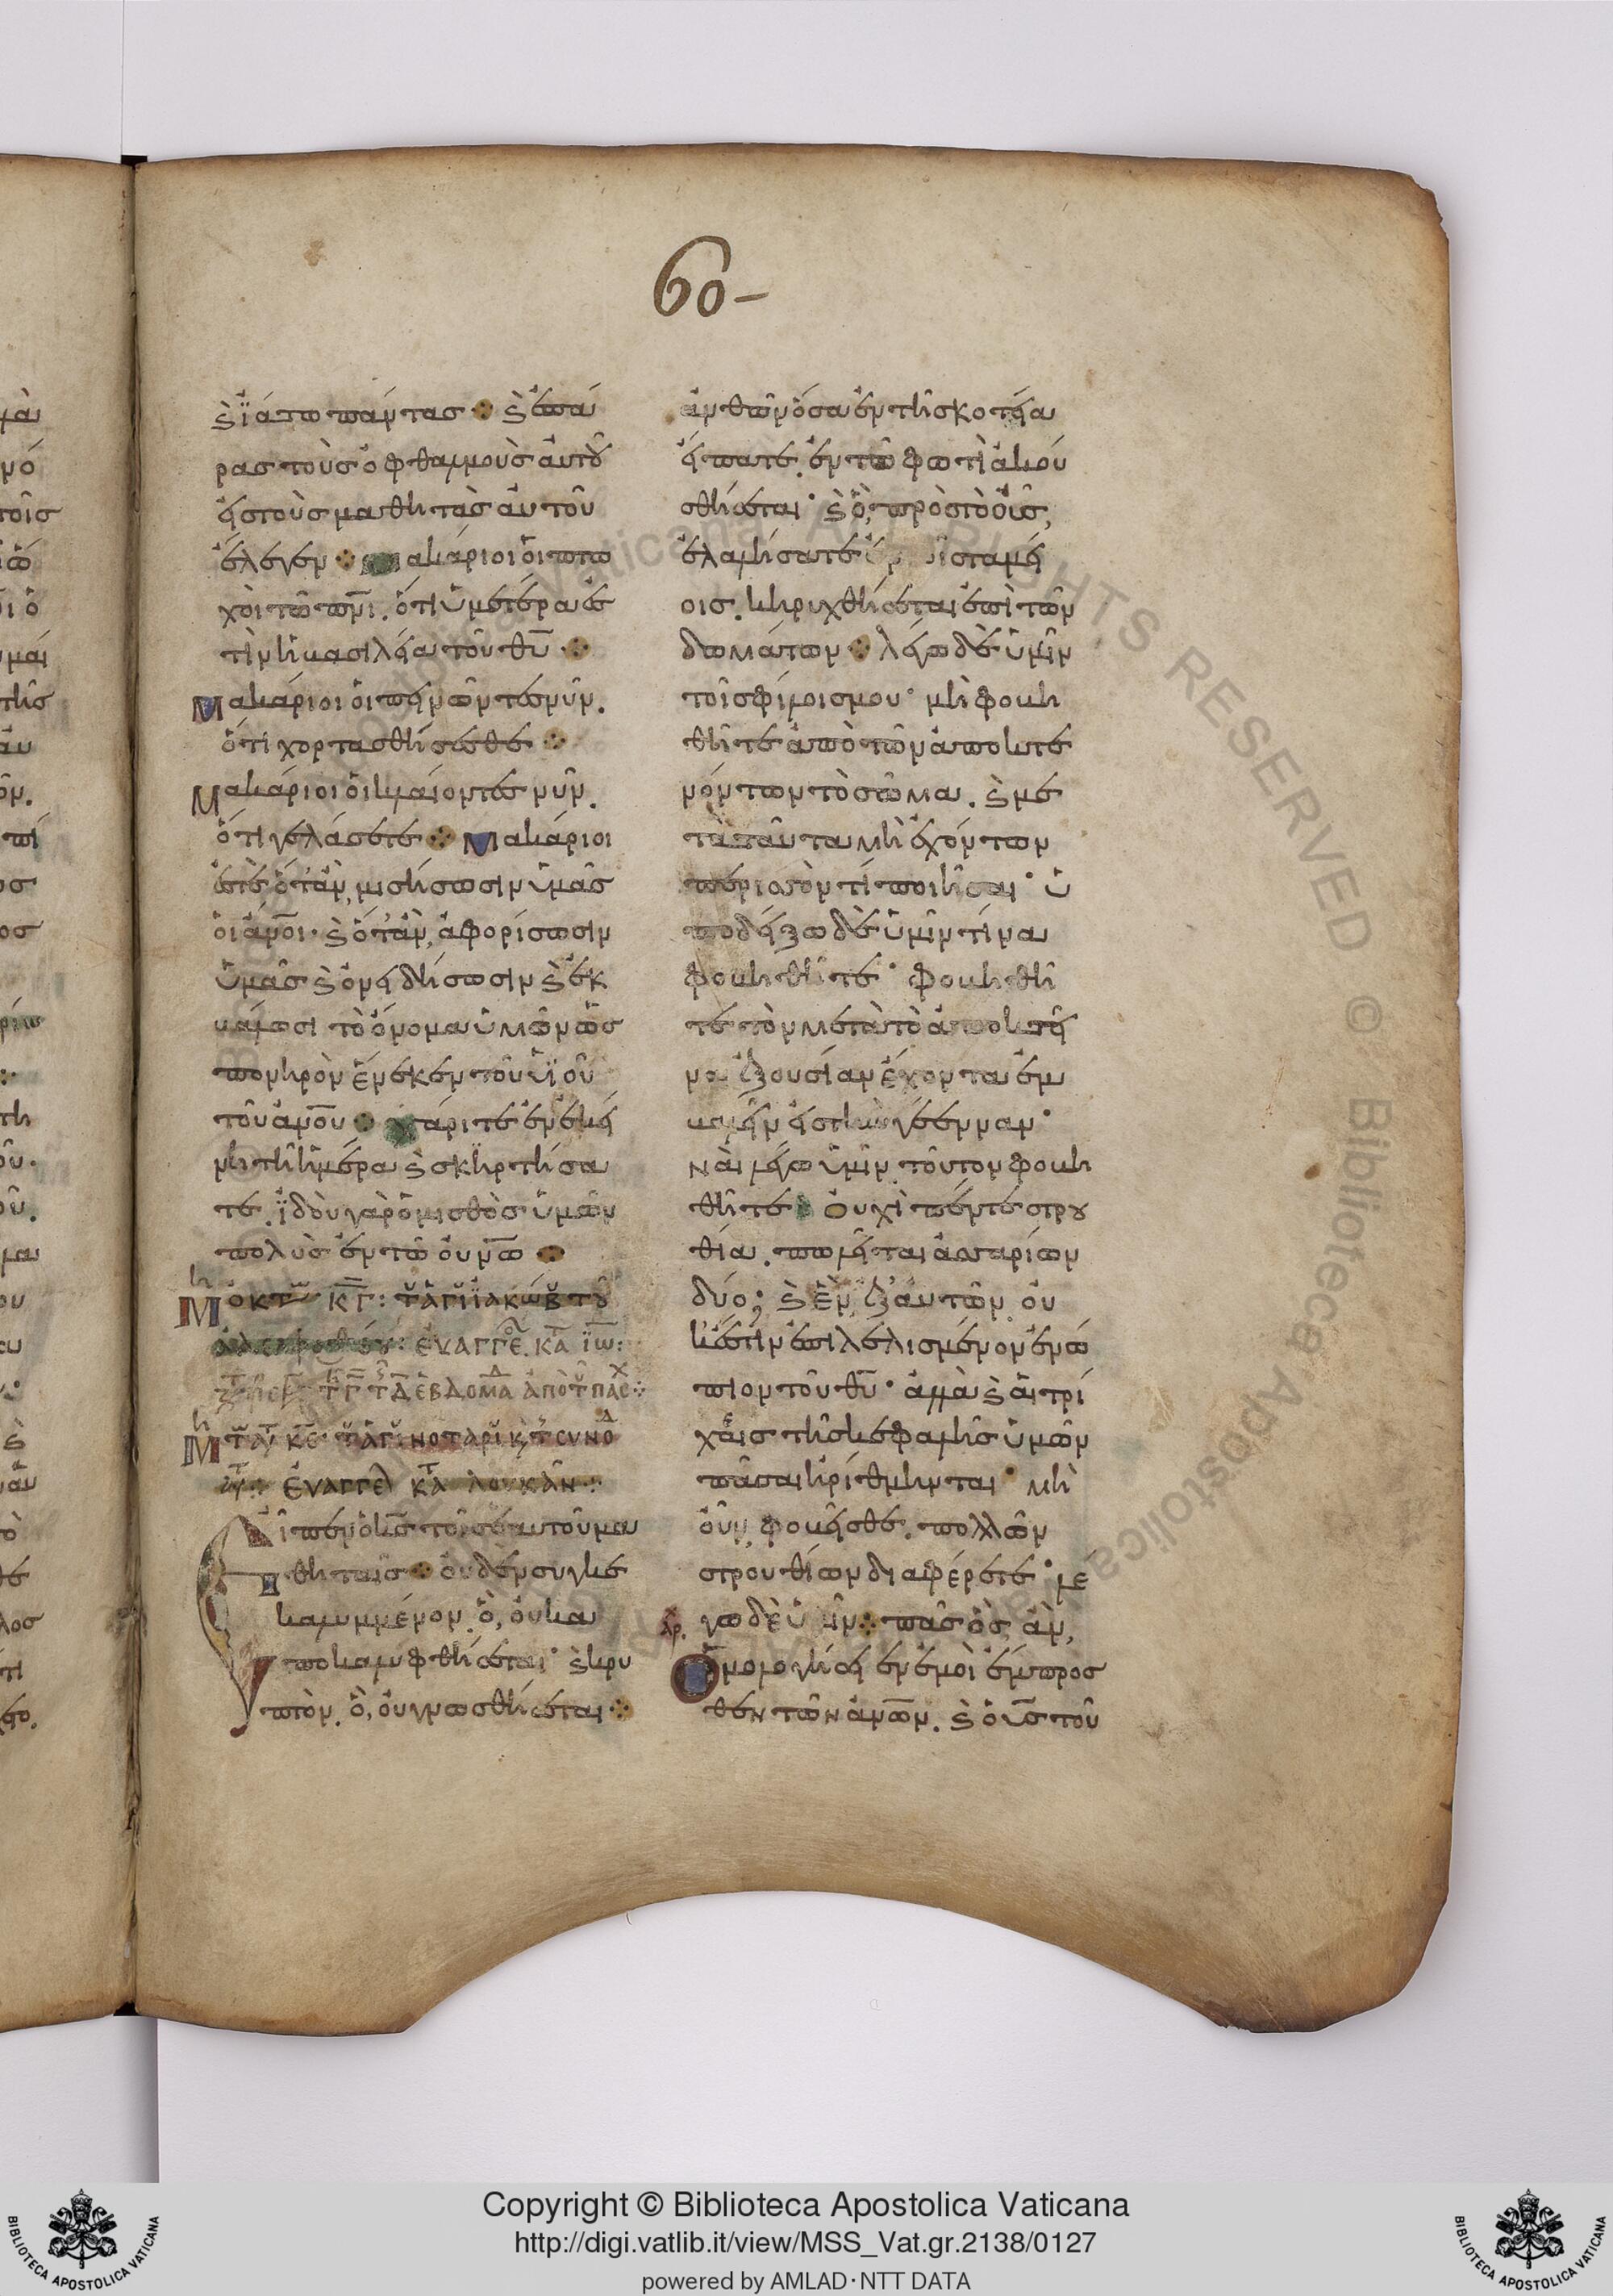 60-
ϗ ἰᾶτο πάντας ϗ ἐπά
ρας τοὺς ὀφθαλμοὺς αὐτοῦ
εἰς τοὺς μαθητὰς αὐτοῦ
ἔλεγεν μακάριοι οἱ πτω
χοὶ τῶ πν̅ι. ὅτι ὑμετέρα ἐσ
τὶν ἡ βασιλεία τοῦ θυ̅
Μακάριοι οἱ πεινῶντες νῦν.
ὅτι χορτασθήσεσθε
Μακάριοι οἱ κλαίοντες νῦν.
ὅτι γελάσετε Μακάριοι
ἐστὲ ὅταν μισήσωσιν ὑμᾶς
οἱ ἀν̅οι· ϗ ὅταν ἀφορίσωσιν
ὑμᾶς ϗ ὀνειδήσωσιν ϗ ἐκ
βάλωσι τὸ ὄνομα ὑμῶν ὡς
πονηρὸν ἕνεκεν τοῦ υἱοῦ
τοῦ ἀν̅ου χάριτε ἐν ἐκεί
νη τῆ ἡμέρα ϗ σκηρτήσα
τε. ἰδοὺ γὰρ ὁ μισθὸς ὑμῶν
πολὺς ἐν τῶ οὐν̅ω
Μ ὀκτ κγ: τ ἁγι ἰακώβ τοῦ
ἀδελφοθέου: εὐαγγε κα ιω:
τ εβδομα απο τ πασχ
Μ τ αυ κε· τ ἁγι νοταρι ϗ τ συνοδ
ευαγγελ κα λουκαν
Εἶπεν ὁ κς̅ τοῖς ἑαυτοῦ μα
θηταῖς οὐδὲν συγκε
καλυμμένον. ὃ, οὐκ ἀ
ποκαλυφθήσεται ϗ κρυ
πτὸν. ὃ, οὐ γνωσθήσεται
ἀνθῶν ὅσα ἐν τῆ σκοτεία
εἴπατε. ἐν τῶ φωτὶ ἀκου
σθήσεται ϗ ὃ, πρὸς τὸ οὖς,
ἐλαλήσατε ἐν τοῖς ταμεί
οις. κηρυχθήσεται ἐπὶ τῶν
δωμάτων λέγω δὲ ὑμῖν
τοῖς φίλοις μου μὴ φοβη
θῆτε ἀπὸ τῶν ἀποκτε
νόντων τὸ σῶμα. ϗ με
τὰ ταῦτα μὴ ἐχόντων
περισσὸν τί ποιῆσαι ὑ
ποδείξω δὲ ὑμῖν τίνα
φοβηθῆτε φοβηθῆ
τε τὸν μετὰ τὸ ἀποκτεῖ
ναι ἐξουσίαν ἔχοντα ἐμ
βαλεῖν εἰς τὴν γέενναν
ναὶ λέγω ὑμῖν τοῦτον φοβη
θῆτε οὐχὶ πέντε στρου
θία. πωλεῖται ἀσσαρίων
δύο; ϗ ἓν ἐξ αὐτῶν οὐ
κ ἔστιν ἐπιλελισμένον ἐνώ
πιον τοῦ θυ̅ ἀλλὰ ϗ αἱ τρί
χαις τῆς κεφαλῆς ὑμῶν
πᾶσαι ἠρίθμηνται μὴ
οὖν φοβεῖσθε. πολλῶν
στρουθίων διαφέρετε λέ
γω δὲ ὑμῖν πᾶς ὃς ἂν,
Ὁμολογήσει ἐν ἐμοὶ ἔμπροσ
θεν τῶν ἀν̅ων. ϗ ὁ υς̅ τοῦ
Copyright © Biblioteca Apostolica Vaticana
http://digi.vatlib.it/view/MSS_Vat.gr.2138/0127
powered by AMLAD·NTT DATA